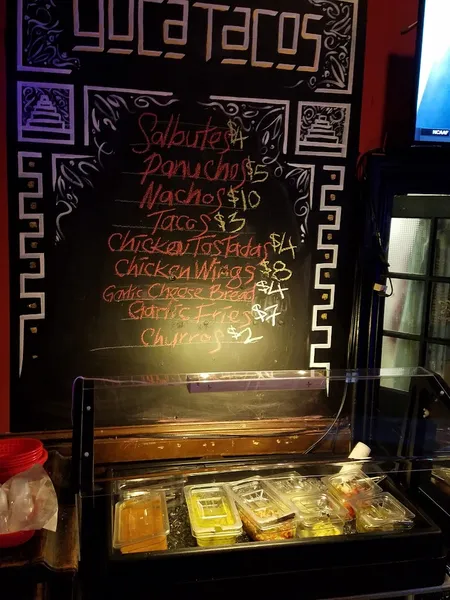 YUCATACOS
Salbutes $4
Panuchos $5
Nachos $10
Tacos $3
Chicken Tostadas $4
Chicken Wings $8
Garlic Cheese Bread $4
Garlic Fries $7
Churros $2
NCAAF